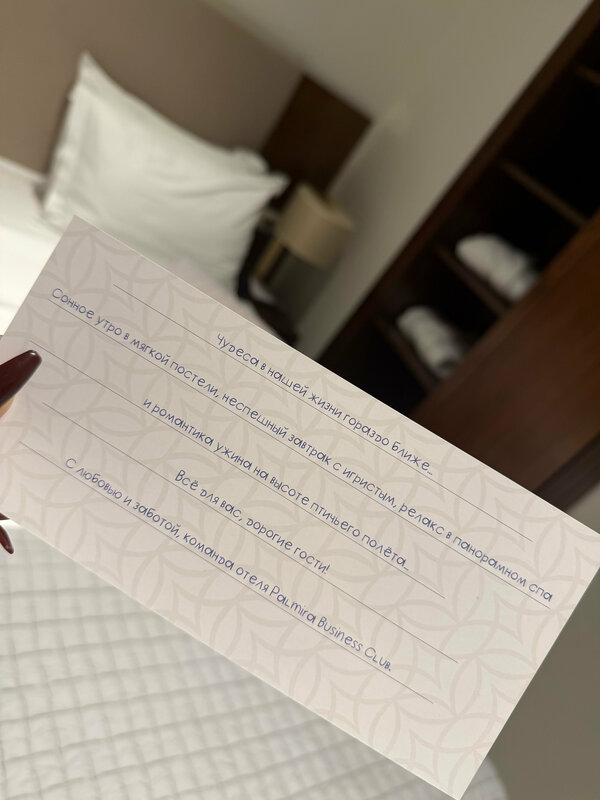 Чудеса в нашей жизни гораздо ближе...
Сонное утро в мягкой постели, неспешный завтрак с игристым, релакс в панорамном спа
и романтика ужина на высоте птичьего полёта...
Всё для вас, дорогие гости!
С любовью и заботой, команда отеля Palmira Business Club.